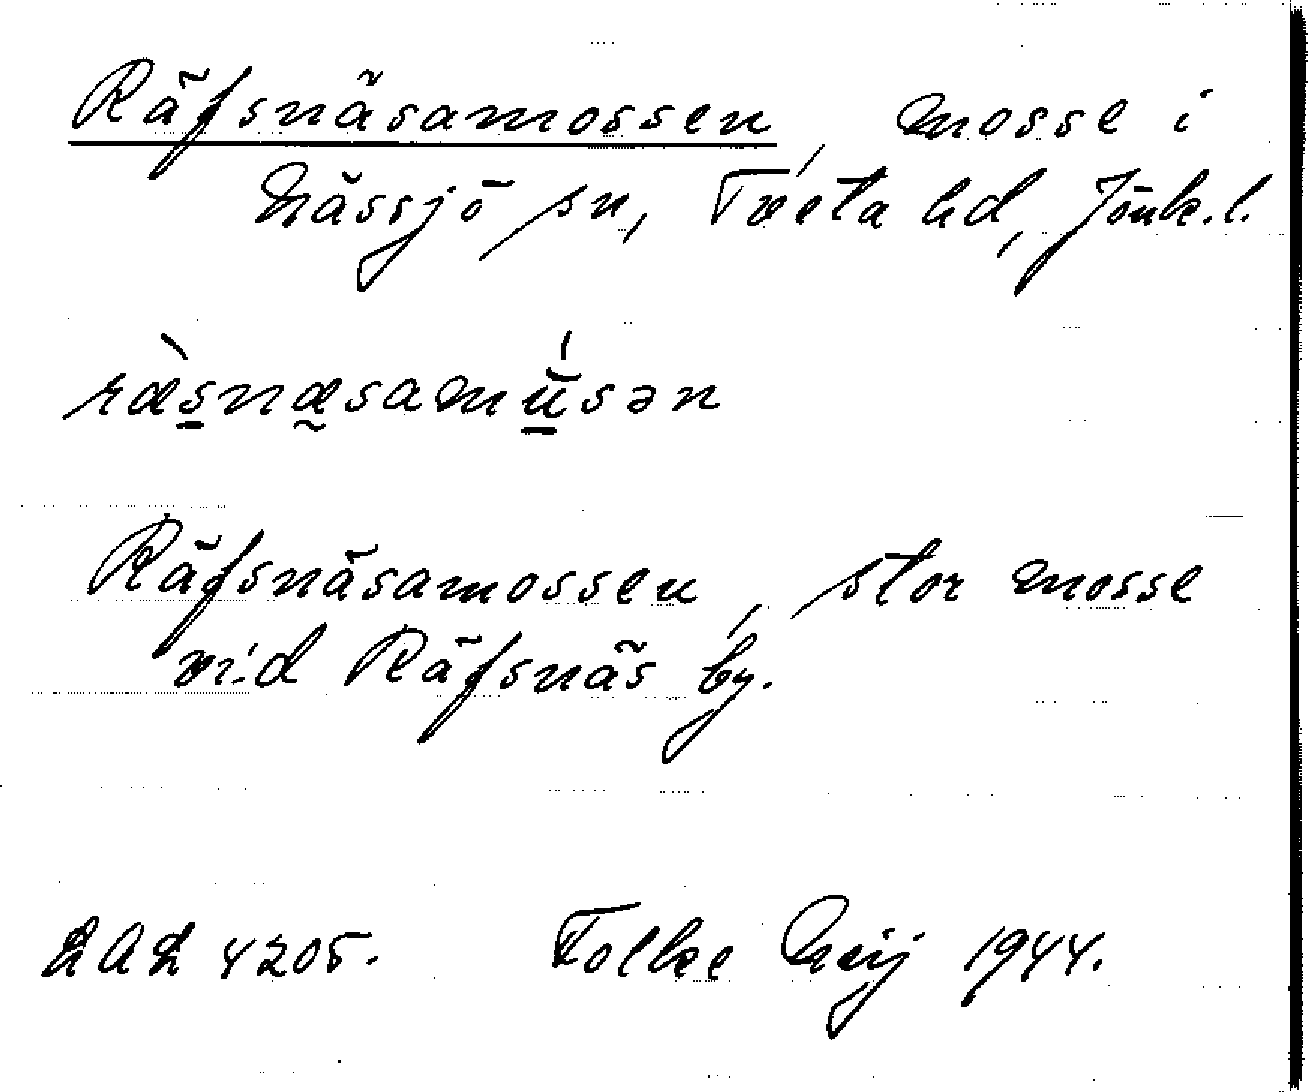 Räfsnäsamossen, mosse i
Nässjö sn, Tveta hd, Jönk. l.
ræ̀snæsamu̇́sən
Räfsnäsamossen, stor mosse
vid Räfsnäs by.
4205. Folke 1944.